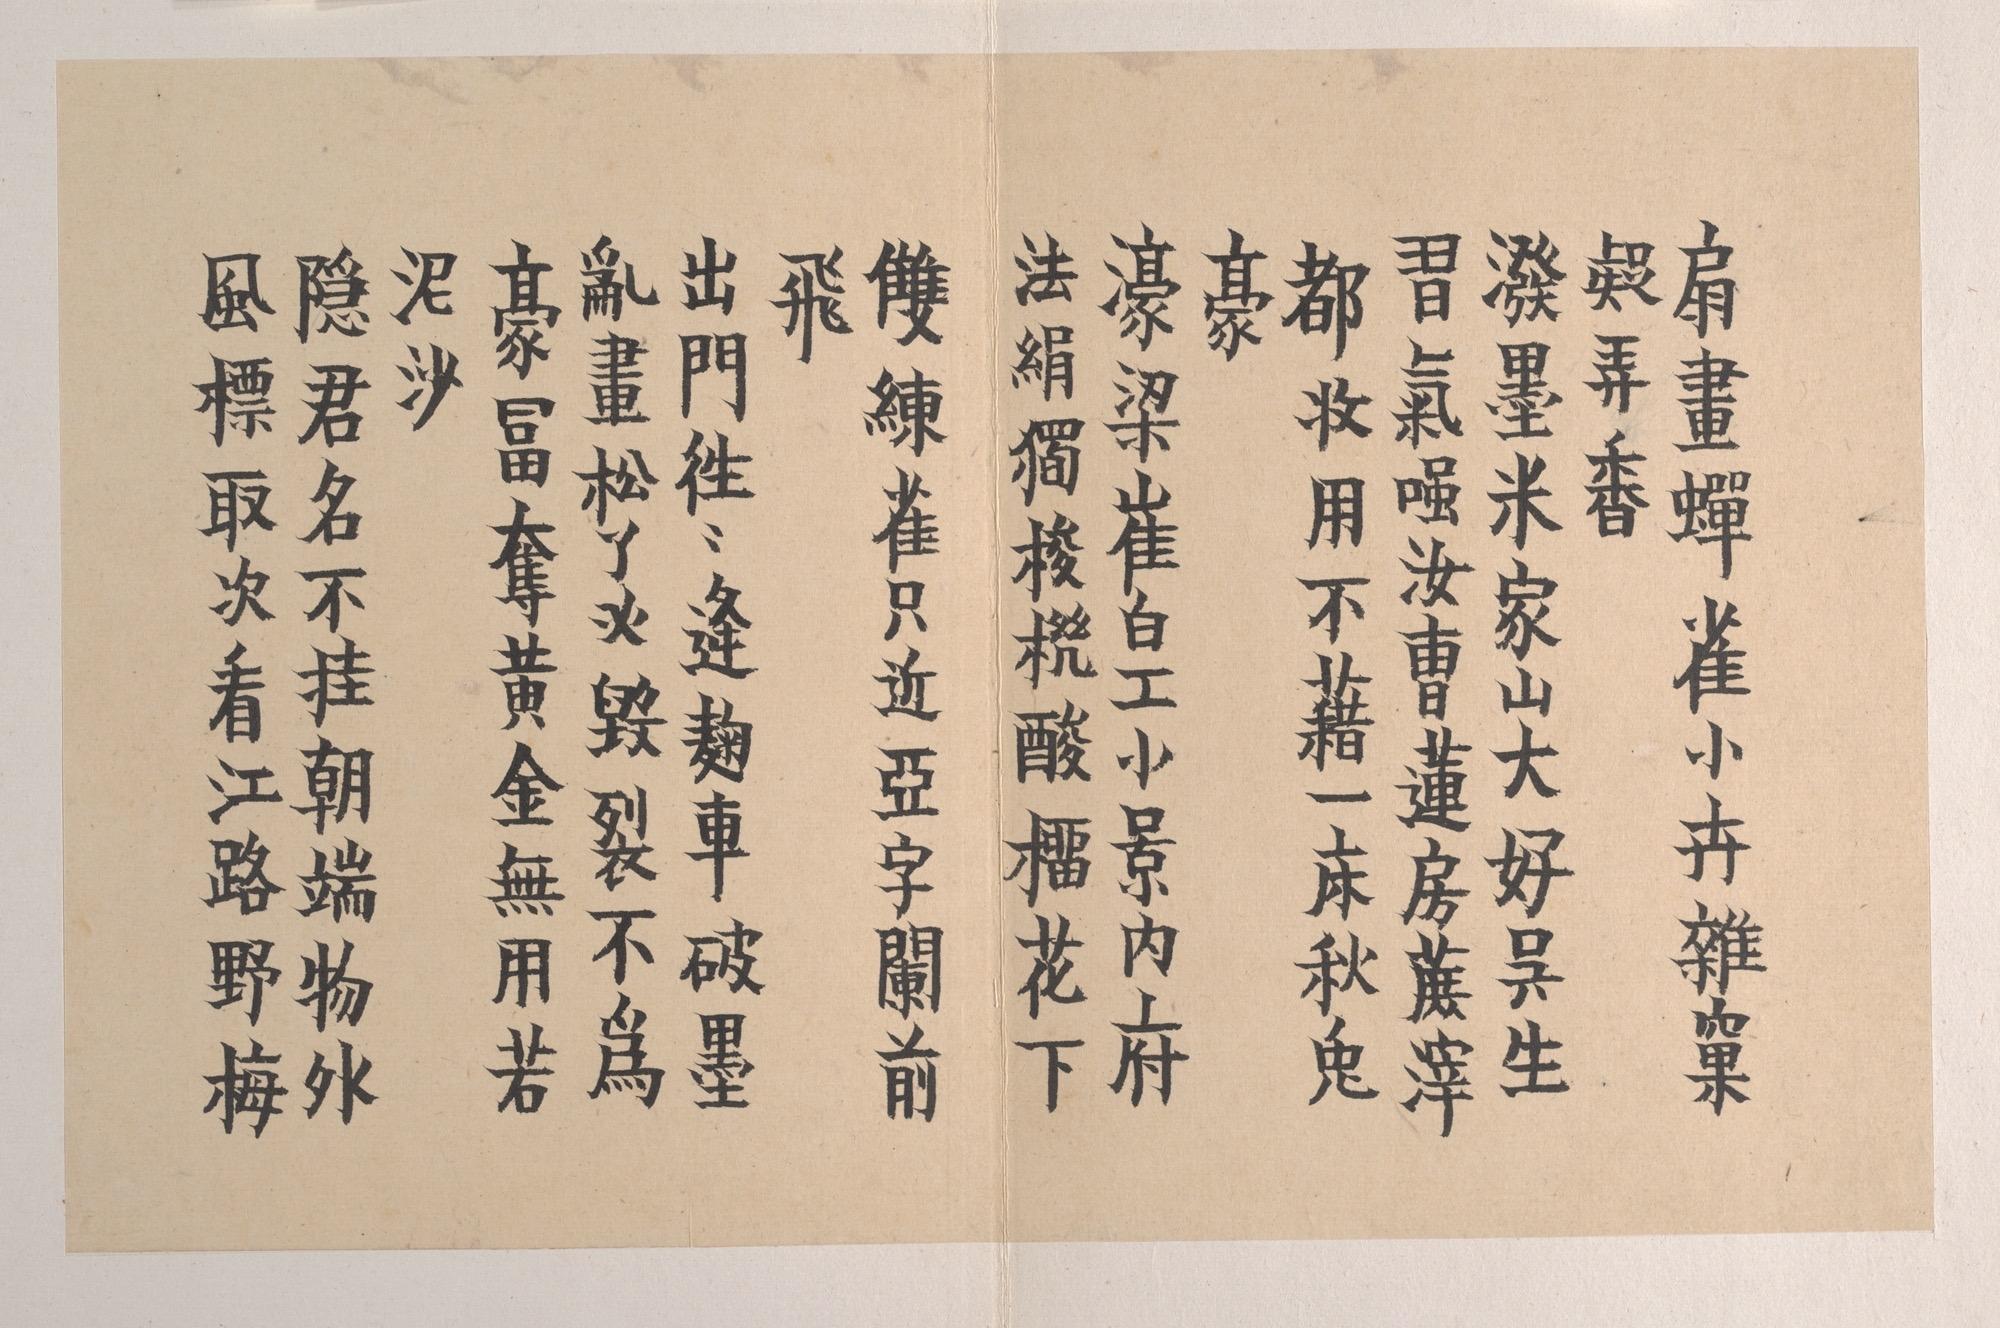 扇畫蟬雀小卉雜窠
娱弄香
潑墨米家山大好吳生
習氣强汝曹蓮房蔗滓
都收用不藉一床秋兔
豪
濠梁崔白工小景内府
法絹獨梭机酸榴花下
雙練雀只近亞字闌前
飛
出門往〻逢麹車破墨
亂畫松丫义毀裂不爲
豪冨奪黄金無用若
泥沙
隱君名不挂朝端物外
風標取次看江路野梅